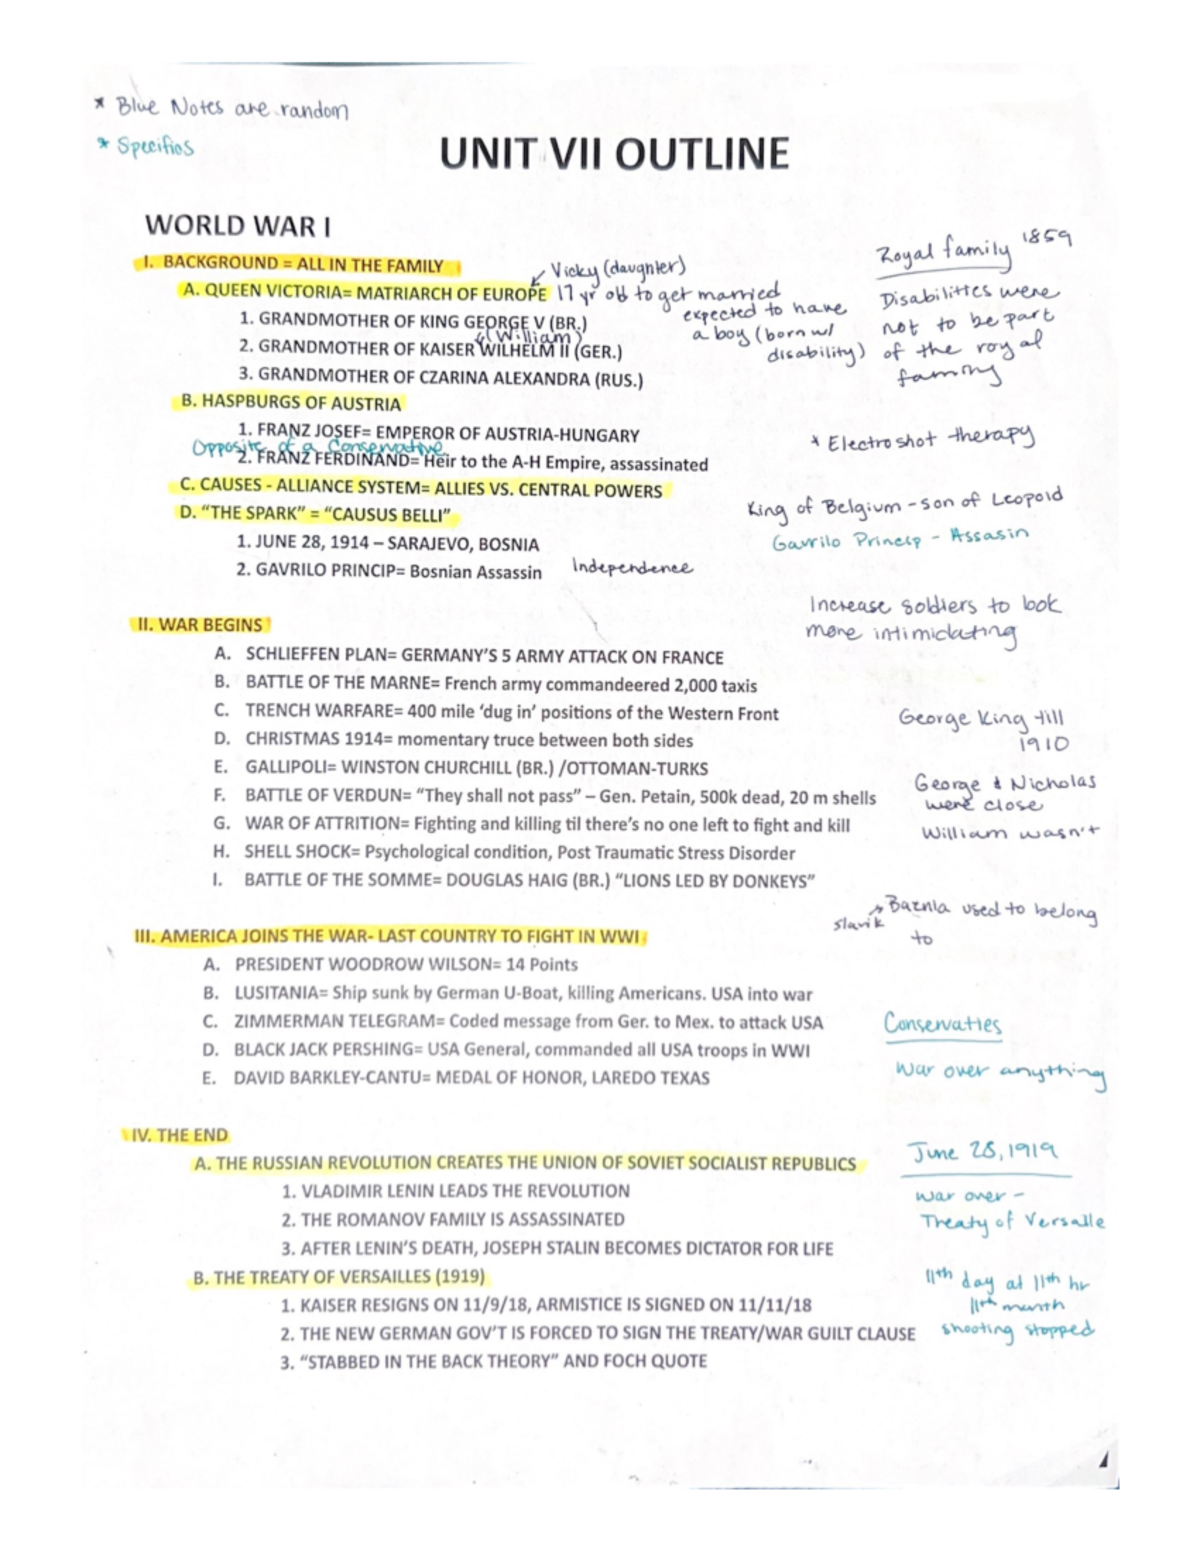 * Blue Notes are random
* Specifios
UNIT VII OUTLINE
WORLD WAR I
Royal family 1859
I. BACKGROUND = ALL IN THE FAMILY
Vicky (daughter)
A. QUEEN VICTORIA= MATRIARCH OF EUROPE 17 yr old to get married
expected to have
a boy (born w/
disability)
Disabilities were
not to be part
of the royal
family
1. GRANDMOTHER OF KING GEORGE V (BR.)
(William)
2. GRANDMOTHER OF KAISER WILHELM II (GER.)
3. GRANDMOTHER OF CZARINA ALEXANDRA (RUS.)
B. HASPBURGS OF AUSTRIA
1. FRANZ JOSEF= EMPEROR OF AUSTRIA-HUNGARY
* Electroshot therapy
Opposite of a Conservative
2. FRANZ FERDINAND= Heir to the A-H Empire, assassinated
C. CAUSES - ALLIANCE SYSTEM= ALLIES VS. CENTRAL POWERS
King of Belgium - son of Leopold
D. “THE SPARK” = “CAUSUS BELLI”
Gavrilo Princip - Assasin
1. JUNE 28, 1914 – SARAJEVO, BOSNIA
2. GAVRILO PRINCIP= Bosnian Assassin Independence
Increase soldiers to look
more intimidating
II. WAR BEGINS
A. SCHLIEFFEN PLAN= GERMANY’S 5 ARMY ATTACK ON FRANCE
B. BATTLE OF THE MARNE= French army commandeered 2,000 taxis
C. TRENCH WARFARE= 400 mile ‘dug in’ positions of the Western Front
George King till
1910
D. CHRISTMAS 1914= momentary truce between both sides
E. GALLIPOLI= WINSTON CHURCHILL (BR.) /OTTOMAN-TURKS
George & Nicholas
were close
F. BATTLE OF VERDUN= “They shall not pass” – Gen. Petain, 500k dead, 20 m shells
G. WAR OF ATTRITION= Fighting and killing til there’s no one left to fight and kill
William wasn't
H. SHELL SHOCK= Psychological condition, Post Traumatic Stress Disorder
I. BATTLE OF THE SOMME= DOUGLAS HAIG (BR.) “LIONS LED BY DONKEYS”
Baznia used to belong
slavik
to
III. AMERICA JOINS THE WAR- LAST COUNTRY TO FIGHT IN WWI
A. PRESIDENT WOODROW WILSON= 14 Points
B. LUSITANIA= Ship sunk by German U-Boat, killing Americans. USA into war
C. ZIMMERMAN TELEGRAM= Coded message from Ger. to Mex. to attack USA
Conservaties
D. BLACK JACK PERSHING= USA General, commanded all USA troops in WWI
War over anything
E. DAVID BARKLEY-CANTU= MEDAL OF HONOR, LAREDO TEXAS
IV. THE END
June 28, 1919
A. THE RUSSIAN REVOLUTION CREATES THE UNION OF SOVIET SOCIALIST REPUBLICS
1. VLADIMIR LENIN LEADS THE REVOLUTION
war over -
Treaty of Versalle
2. THE ROMANOV FAMILY IS ASSASSINATED
3. AFTER LENIN’S DEATH, JOSEPH STALIN BECOMES DICTATOR FOR LIFE
B. THE TREATY OF VERSAILLES (1919)
11th day at 11th hr
11th month
shooting stopped
1. KAISER RESIGNS ON 11/9/18, ARMISTICE IS SIGNED ON 11/11/18
2. THE NEW GERMAN GOV’T IS FORCED TO SIGN THE TREATY/WAR GUILT CLAUSE
3. “STABBED IN THE BACK THEORY” AND FOCH QUOTE